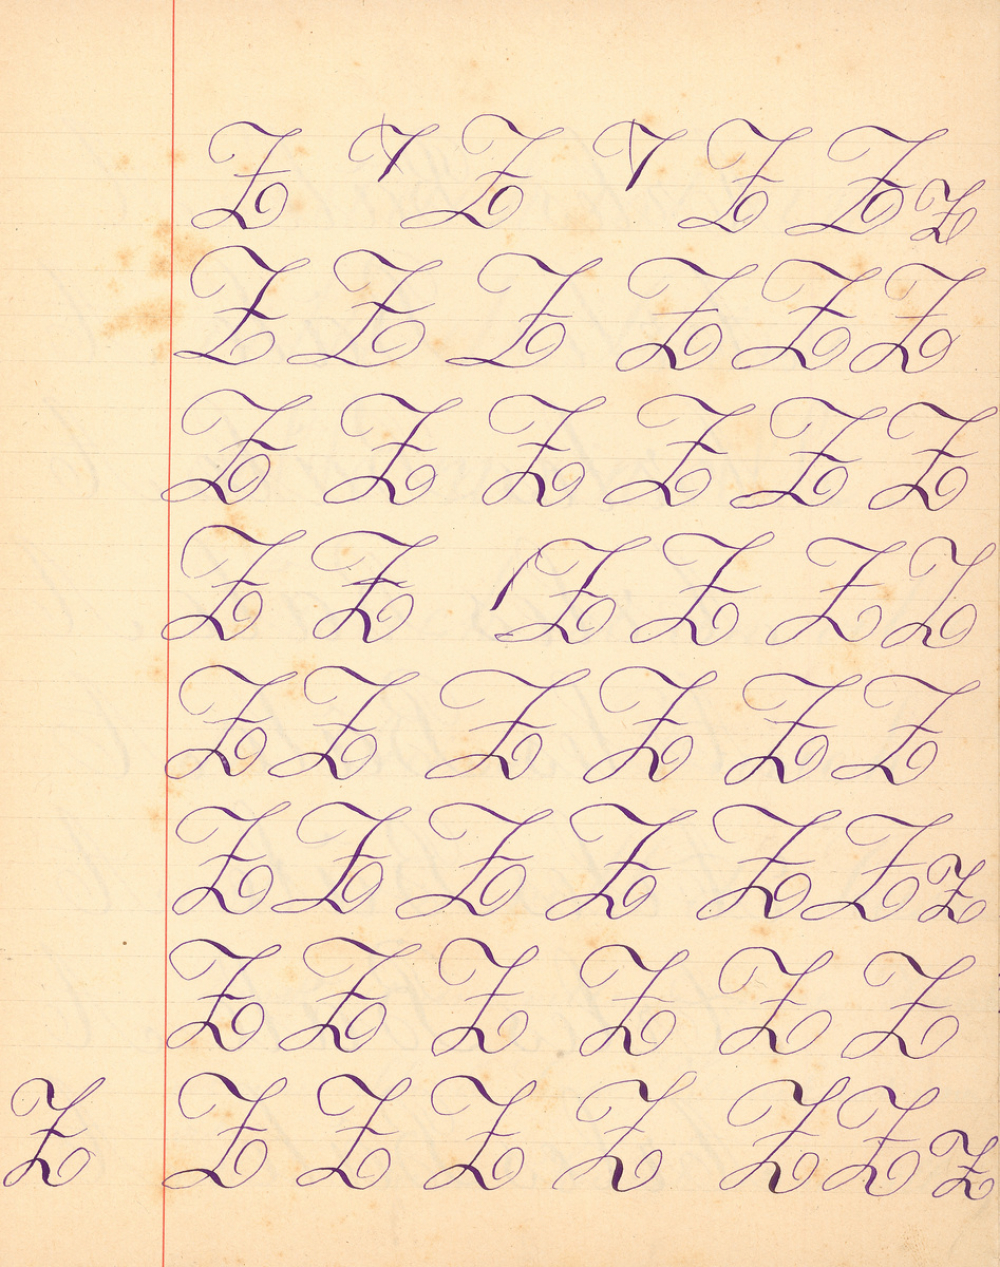 Z Z Z Z Z
Z Z Z Z Z Z
Z Z Z Z Z Z
Z Z Z Z Z Z
Z Z Z Z Z Z
Z Z Z Z Z Z Z
Z Z Z Z Z Z
Z Z Z Z Z Z Z Z Z